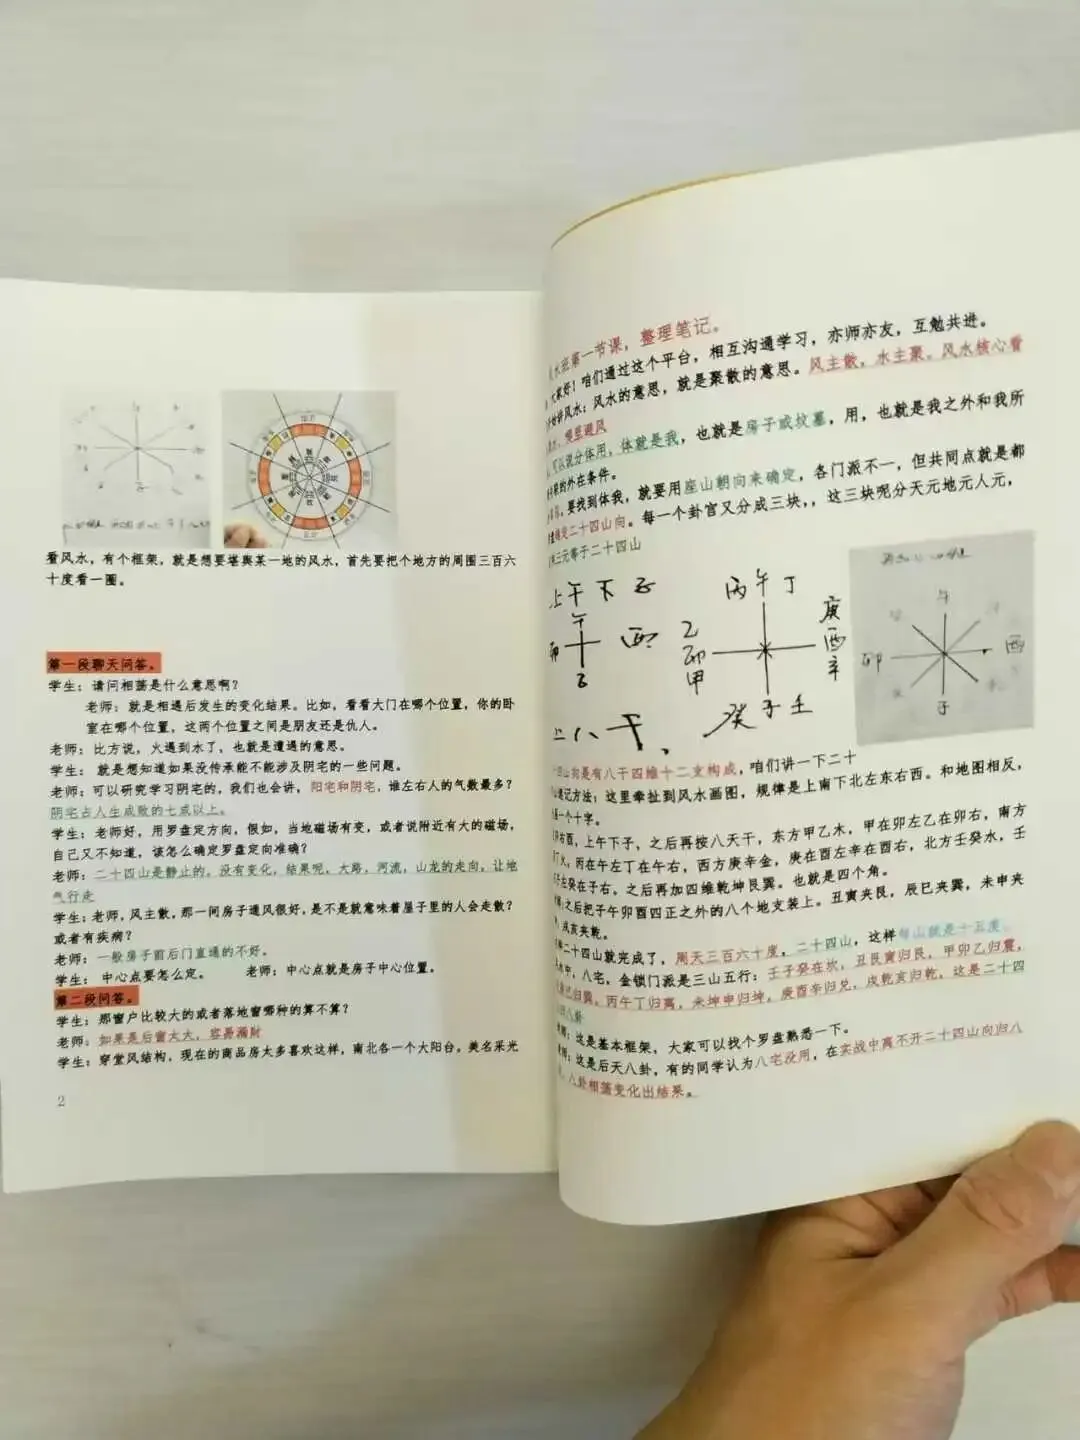 看风水，有个框架，就是想要堪舆某一地的风水，首先要把个地方的周围三百六
十度看一圈。
第一段聊天问答。
学生：请问相荡是什么意思啊？
老师：就是相遇后发生的变化结果。比如，看看大门在哪个位置，你的卧
室在哪个位置，这两个位置之间是朋友还是仇人。
老师：比方说，火遇到水了，也就是遭遇的意思。
学生： 就是想知道如果没传承能不能涉及阴宅的一些问题。
老师：可以研究学习阴宅的，我们也会讲，阳宅和阴宅，谁左右人的气数最多？
阴宅占人生成败的七成以上。
学生：老师好，用罗盘定方向，假如，当地磁场有变，或者说附近有大的磁场，
自己又不知道，该怎么确定罗盘定向准确？
老师：二十四山是静止的。没有变化，结果呢，大路，河流，山龙的走向，让地
气行走
学生：老师，风主散，那一间房子通风很好，是不是就意味着屋子里的人会走散？
或者有疾病？
老师：一般房子前后门直通的不好。
学生： 中心点要怎么定。 老师：中心点就是房子中心位置。
第二段问答。
学生：那窗户比较大的或者落地窗哪种的算不算？
老师：如果是后窗太大，容易漏财
学生：穿堂风结构，现在的商品房太多喜欢这样，南北各一个大阳台。美名采光
2
水班第一节课，整理笔记。
大家好！咱们通过这个平台，相互沟通学习，亦师亦友，互勉共进。
始讲风水：风水的意思，就是聚散的意思。风主散，水主聚。风水核心看
水，喂里避风
可以说分体用，体就是我，也就是房子或坟墓，用，也就是我之外和我所
的外在条件。
要找到体我，就要用座山朝向来确定，各门派不一，但共同点就是都
二十四山向。每一个卦宫又分成三块，，这三块呢分天元地元人元，
三元等于二十四山
上午下子
午
卯 西
丙午丁
乙
卯
甲
庚
酉
辛
癸子壬
上八干，
午
卯 西
子
四山向是有八干四维十二支构成，咱们讲一下二十
速记方法；这里牵扯到风水画图，规律是上南下北左东右西。和地图相反，
一个十字。
卯右酉，上午下子，之后再按八天干，东方甲乙木，甲在卯左乙在卯右，南方
丁火，丙在午左丁在午右，西方庚辛金，庚在酉左辛在酉右，北方壬癸水，壬
子左癸在子右。之后再加四维乾坤艮巽。也就是四个角。
之后把子午卯酉四正之外的八个地支装上。丑寅夹艮，辰巳夹巽，未申夹
，戌亥夹乾。
第二十四山就完成了，周天三百六十度，二十四山，这样每山就是十五度。
中，八宅，金锁门派是三山五行：壬子癸在坎，丑艮寅归艮，甲卯乙归震，
巽巳归巽，丙午丁归离，未坤申归坤，庚酉辛归兑，戌乾亥归乾，这是二十四
八卦
：这是基本框架，大家可以找个罗盘熟悉一下。
：这是后天八卦，有的同学认为八宅没用，在实战中离不开二十四山向归八
，八卦相荡变化出结果。